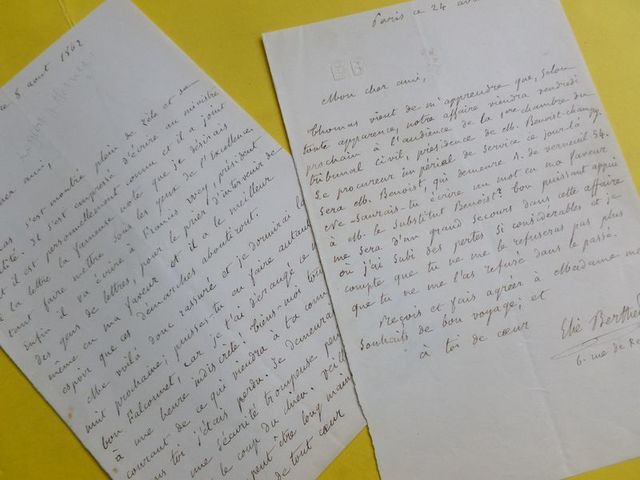 ce 8 aout 1862
cher ami,
s'est montré plein de zèle et sa
. Il s'est empressé d'écrire au ministre
il est personnellement connu et il a joint
à la lettre la fameuse note que je désirais
tant faire mettre sous les yeux de l'Excellence
Enfin il va écrire à Francis Wey, président
des gens de lettres, pour le prier d'intervenir de
même en ma faveur et il a le meilleur
espoir que ces démarches aboutiront.
Me voilà donc rassuré et je dormirai la
nuit prochaine; puisses tu en faire autant
bon Falconnet; car je t'ai dérangé ce
à une heure indiscrète! Tiens-moi
courant de ce qui viendra à ta conn
toi j'étais perdu. Je demeurais
une sécurité trompeuse
le coup du
peut être long
de tout cœur
Paris ce 24
E B
Mon cher ami,
Thomas vient de m'apprendre que, selon
toute apparence, notre affaire viendra vendredi
prochain à l'audience de la 1ere chambre du
tribunal civil, présidence de Mr. Benoit-Champy.
Le procureur impérial de service ce jour là
sera Mr. Benoist, qui demeure r. de verneuil 54.
Ne saurais-tu écrire un mot en ma faveur
à Mr. le substitut Benoist? ton puissant appui
me sera d'un grand secours dans cette affaire
où j'ai subi des pertes si considérables et je
compte que tu ne me le refuseras pas plus
que tu ne me l'as refusé dans le passé.
Reçois et fais agréer à Madame mes
souhaits de bon voyage; et
à toi de cœur
Elie Berthet
6. rue de